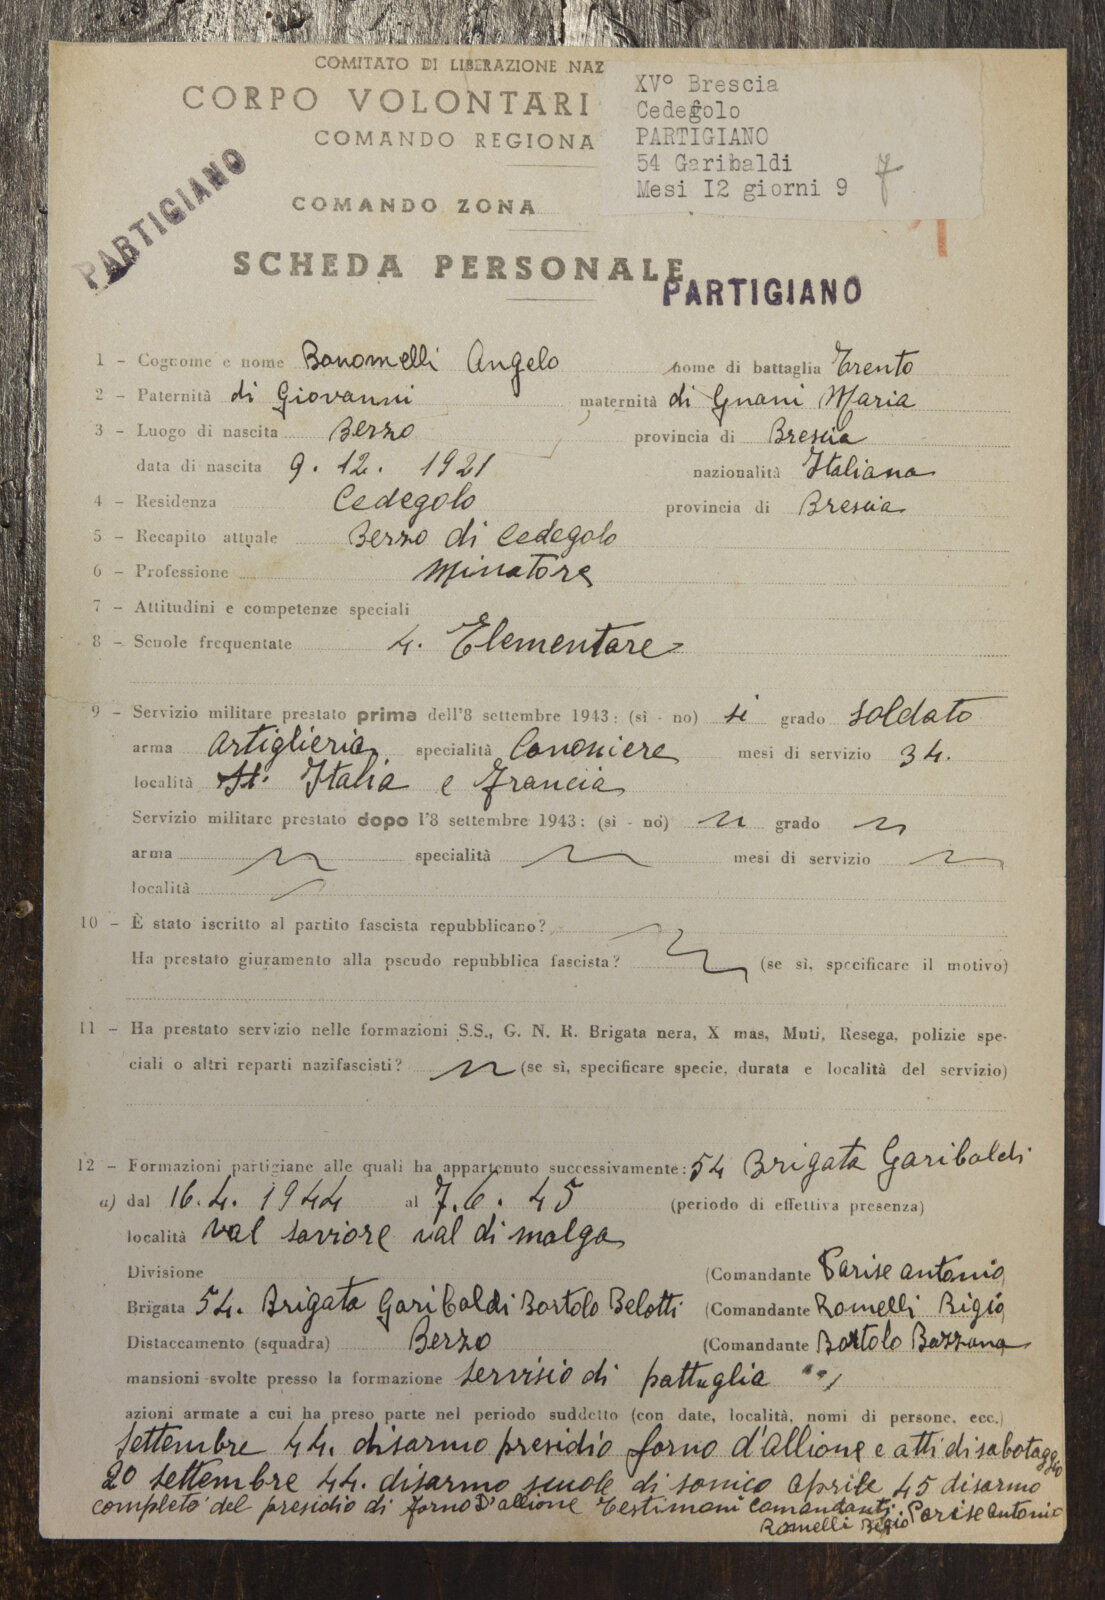 COMITATO DI LIBERAZIONE NAZ
CORPO VOLONTARI
COMANDO REGIONA
XV° Brescia
Cedegolo
PARTIGIANO
54 Garibaldi
Mesi I2 giorni 9
7
COMANDO ZONA
PARTIGIANO
SCHEDA PERSONALE
PARTIGIANO
1 - Cognome e nome Bonomelli Angelo nome di battaglia Trento
2 - Paternità di Giovanni maternità di Gnani Maria
3 - Luogo di nascita Berzo provincia di Brescia
data di nascita 9. 12. 1921 nazionalità Italiana
4 - Residenza Cedegolo provincia di Brescia
5 - Recapito attuale Berzo di Cedegolo
6 - Professione Minatore
7 - Attitudini e competenze speciali
8 - Scuole frequentate 4. Elementare
9 - Servizio militare prestato prima dell'8 settembre 1943: (sì - no) si grado soldato
arma Artiglieria specialità Canoniere mesi di servizio 34.
località Italia e Francia
Servizio militare prestato dopo l'8 settembre 1943: (sì - no) grado
arma specialità mesi di servizio
località
10 - È stato iscritto al partito fascista repubblicano?
Ha prestato giuramento alla pseudo repubblica fascista? (se sì, specificare il motivo)
11 - Ha prestato servizio nelle formazioni S.S., G. N. R. Brigata nera, X mas, Muti, Resega, polizie spe-
ciali o altri reparti nazifascisti? (se sì, specificare specie, durata e località del servizio)
12 - Formazioni partigiane alle quali ha appartenuto successivamente: 54 Brigata Garibaldi
a) dal 16. 4. 1944 al 7. 6. 45 (periodo di effettiva presenza)
località val saviore val di malga
Divisione (Comandante Parise antonio
Brigata 54. Brigata Garibaldi Bortolo Belotti (Comandante Romelli Bigio
Distaccamento (squadra) Berzo (Comandante Bortolo Bazzana
mansioni svolte presso la formazione servisio di pattuglia
azioni armate a cui ha preso parte nel periodo suddetto (con date, località, nomi di persone, ecc.)
settembre 44. disarmo presidio forno d'allione e atti di sabotaggio
20 settembre 44. disarmo scuole di sonico Aprile 45 disarmo
completo del presidio di Forno D'allione Testimoni Comandanti Parise Antonio
Romelli Bigio